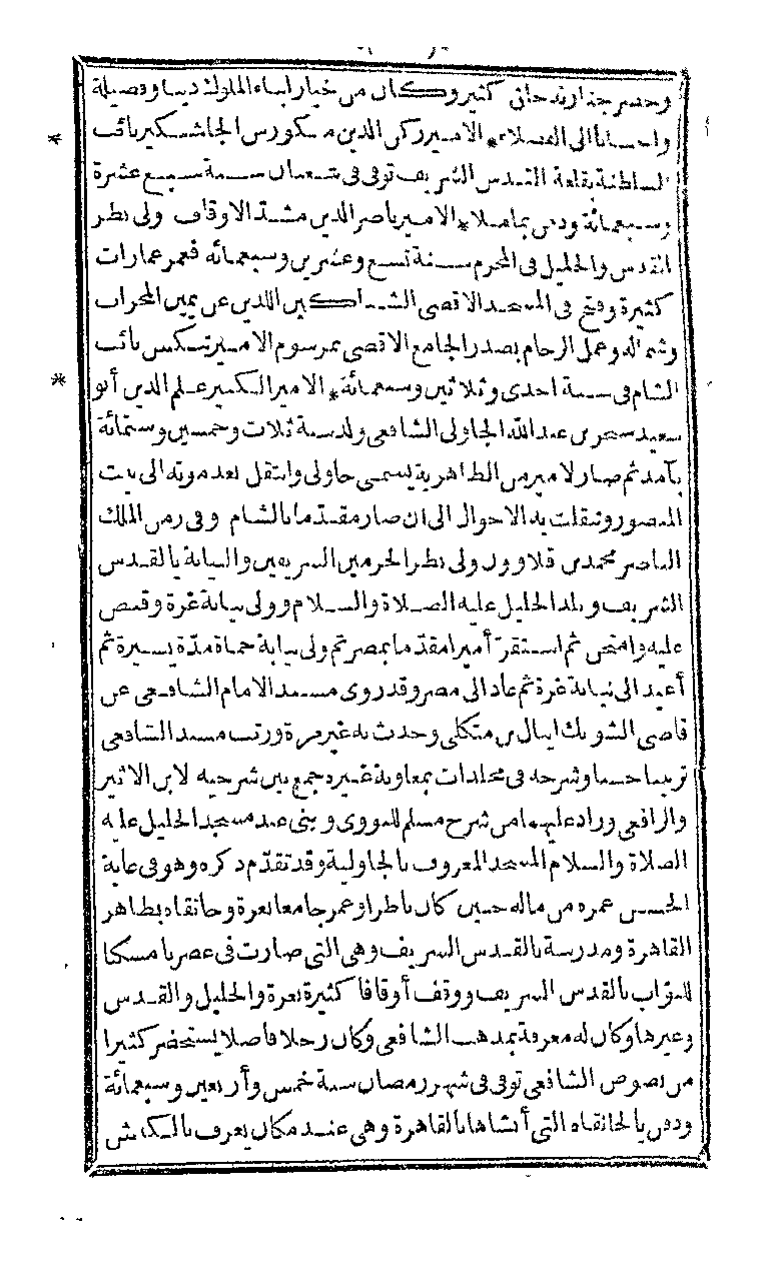 وحضر جنازته خلق كثير وكان من خيار أبناء الملوك دينا وفضيلة
واحسانا الى الفضلاء * الامير ركن الدين منكورس الجاشنكير نائب
السلطنة بقلعة القدس الشريف توفى فى شعبان سنة سبع عشرة
وسبعمائة ودفن بماملا * الامير ناصر الدين مشد الاوقاف ولى نظر
القدس والخليل فى المحرم سنة تسع وعشرين وسبعمائه فعمر عمارات
كثيرة وفتح فى المسجد الاقصى الشباكين اللذين عن يمين المحراب
وشماله وعمل الرخام بصدر الجامع الاقصى بمرسوم الامير تنكس نائب
الشام فى سنة احدى وثلاثين وسبعمائة * الامير الكبير علم الدين أبو
سعيد سنجر بن عبد الله الجاولى الشافعى ولد سنة ثلاث وخمسين وستمائة
بآمد ثم صار لامير من الظاهرية يسمى جاولى وانتقل بعد موته الى بيت
المنصور وتنقلت به الاحوال الى ان صار مقدما بالشام وفى زمن الملك
الناصر محمد بن قلاوون ولى نظر الحرمين الشريفين والنيابة بالقدس
الشريف وبلد الخليل عليه الصلاة والسلام وولى نيابة غزة وقبض
عليه وامتحن ثم استقر أميرا مقدما بمصر ثم ولى نيابة حماة مدة يسيرة ثم
أعيد الى نيابة غزة ثم عاد الى مصر وقد روى مسند الامام الشافعى عن
قاضى الشوبك انيال بن متكلى وحدث به غير مرة ورتب مسند الشافعى
ترتيبا حسنا وشرحه فى مجلدات بمعاونة غيره جمع بين شرحيه لابن الاثير
والرافعى وزاد عليهما من شرح مسلم للنووى وبنى عند مسجد الخليل عليه
الصلاة والسلام المسجد المعروف بالجاولية وقد تقدم ذكره وهو فى غاية
الحسن عمره من ماله حين كان ناظرا وعمر جامعا بغزة وخانقاه بظاهر
القاهرة ومدرسة بالقدس الشريف وهى التى صارت فى عصرنا مسكنا
للنواب بالقدس الشريف ووقف أوقافا كثيرة بغزة والخليل والقدس
وغيرها وكان له معرفة بمذهب الشافعى وكان رجلا فاضلا يستحضر كثيرا
من نصوص الشافعى توفى فى شهر رمضان سنة خمس وأربعين وسبعمائة
ودفن بالخانقاه التى أنشاها بالقاهرة وهى عند مكان يعرف بالكبش